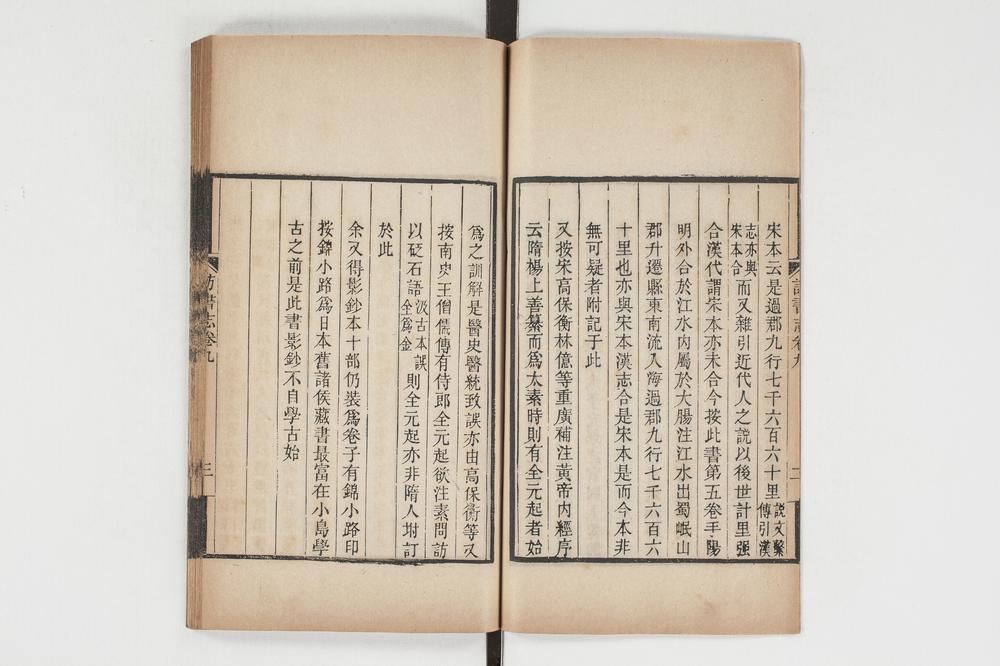 宋本云是過郡九行七千六百六十里說文繫傳引漢
志亦與宋本合而又雜引近代人之說以後世計里强
合漢代謂宋本亦未合今按此書第五卷手陽
明外合於江水內屬於大腸注江水出蜀岷山
郡升遷縣東南流入海過郡九行七千六百六
十里也亦與宋本漢志合是宋本是而今本非
無可疑者附記于此
又按宋高保衡林億等重廣補注黃帝內經序
云隋楊上善纂而爲太素時則有全元起者始
爲之訓解是醫史醫統致誤亦由高保衡等又
按南史王僧孺傳有侍郎全元起欲注素問訪
以砭石語汲古本誤全爲金則全元起亦非隋人坿訂
於此
余又得影鈔本十部仍裝爲卷子有錦小路印
按錦小路爲日本舊諸侯藏書最富在小島學
古之前是此書影鈔不自學古始
訪書志卷九
二
訪書志卷九
三